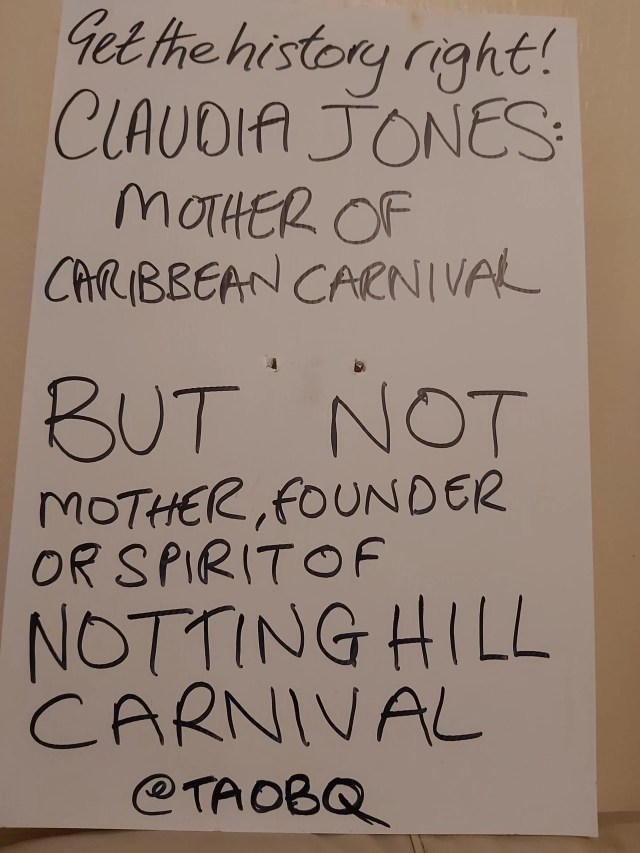 Get the history right!
CLAUDIA JONES:
MOTHER OF
CARIBBEAN CARNIVAL
BUT NOT
MOTHER, FOUNDER
OR SPIRIT OF
NOTTING HILL
CARNIVAL
@TAOBQ